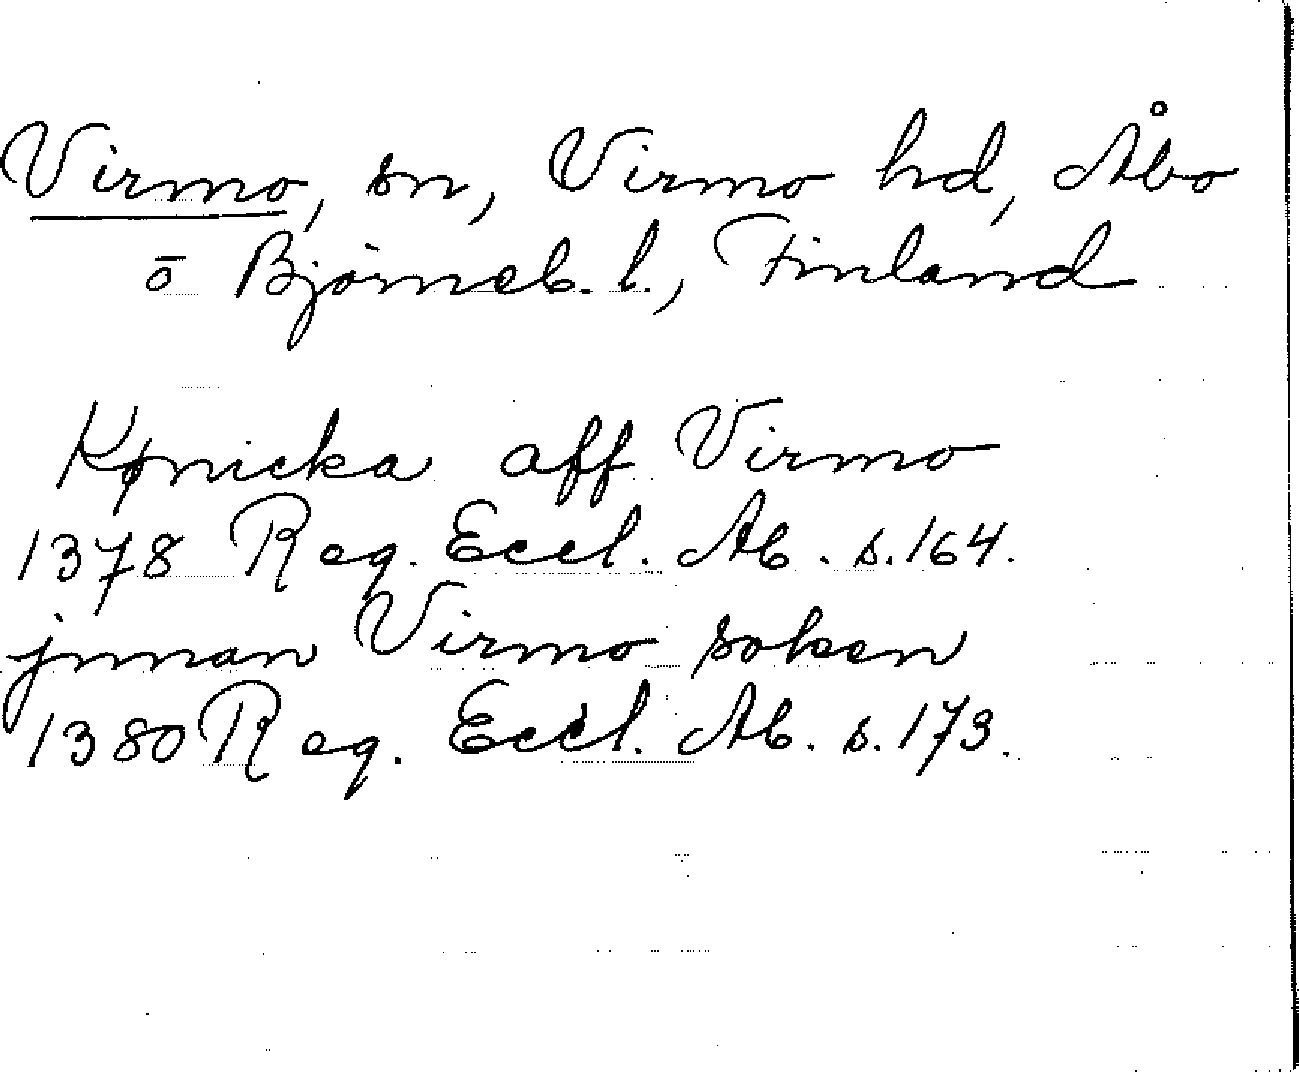 Virmo, sn, Virmo hd, Åbo
o Björneb. l., Finland
Kønicka aff Virmo
1378 Reg. Eccl. Ab. s. 164.
jnnan Virmo soken
1380 Reg. Eccl. Ab. s. 173.